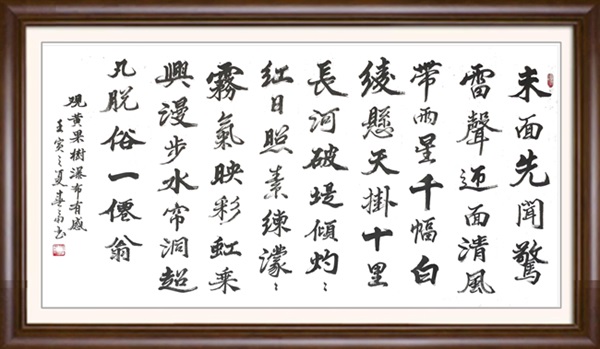 未面先聞驚
雷聲迎面清風
帶雨星千幅白
綾懸天掛十里
長河破堤傾灼〻
红日照素練濛〻
霧氣映彩虹乘
興漫步水帘洞超
凡脱俗一僊翁
观黄果樹瀑布有感
壬寅之夏春书